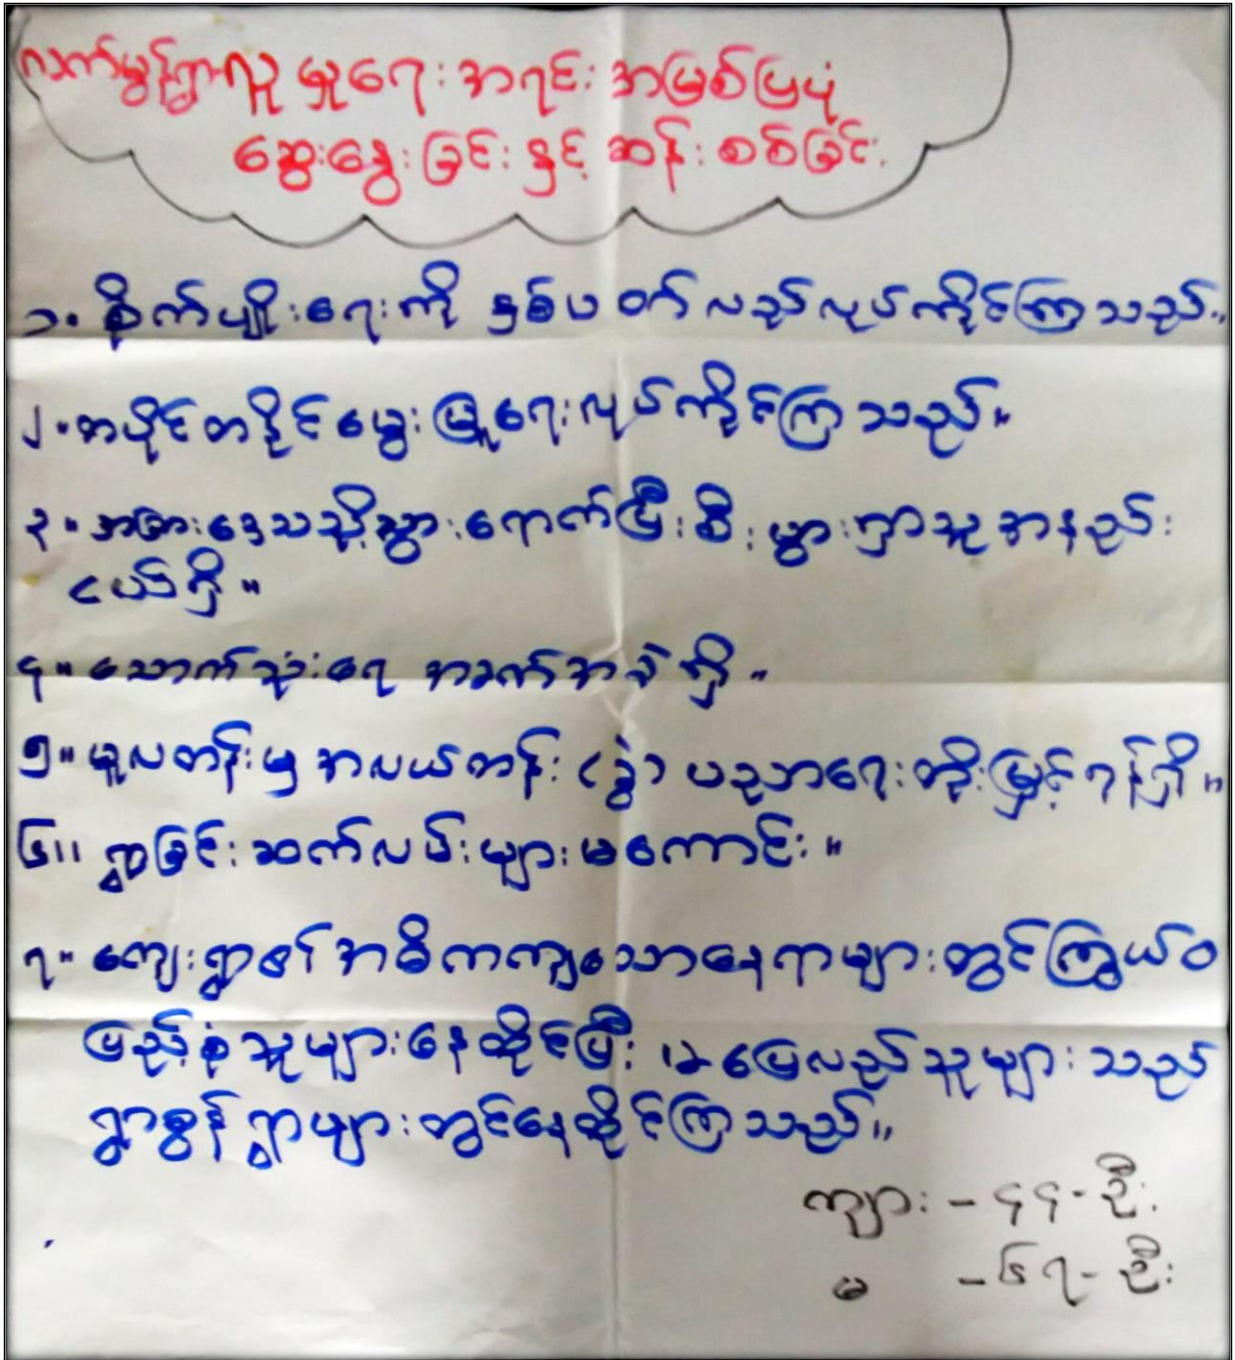 လက်မွန်ရွာလူမှုရေး အရင်း အမြစ်ပြပုံ
ဆွေးနွေးခြင်း နှင့် ဆန်းစစ်ခြင်း
၁။ စိုက်ပျိုးရေးကို နှစ်ပတ်လည်လုပ်ကိုင်ကြသည်။
၂။ တပိုင်တနိုင်မွေးမြူရေးလုပ်ကိုင်ကြသည်။
၃။ အခြားဒေသသို့သွားရောက်ပြီးစီးပွားရှာသူအနည်း
ငယ်ရှိ။
၄။ သောက်သုံးရေ အခက်အခဲရှိ။
၅။ မူလတန်းမှ အလယ်တန်း (ခွဲ) ပညာရေးတိုးမြှင့်ရန်ရှိ။
၆။ ရွာခြင်းဆက်လမ်းများမကောင်း။
၇။ ကျေးရွာ၏အဓိကကျသောနေရာများတွင်ကြွယ်ဝ
ပြည့်စုံသူများနေထိုင်ပြီး ယာမြေလည်သူများသည်
ရွာစွန်ရွာဖျားတွင်နေထိုင်ကြသည်။
ကျား - ၄၄ - ဦး
မ - ၆၇ - ဦး